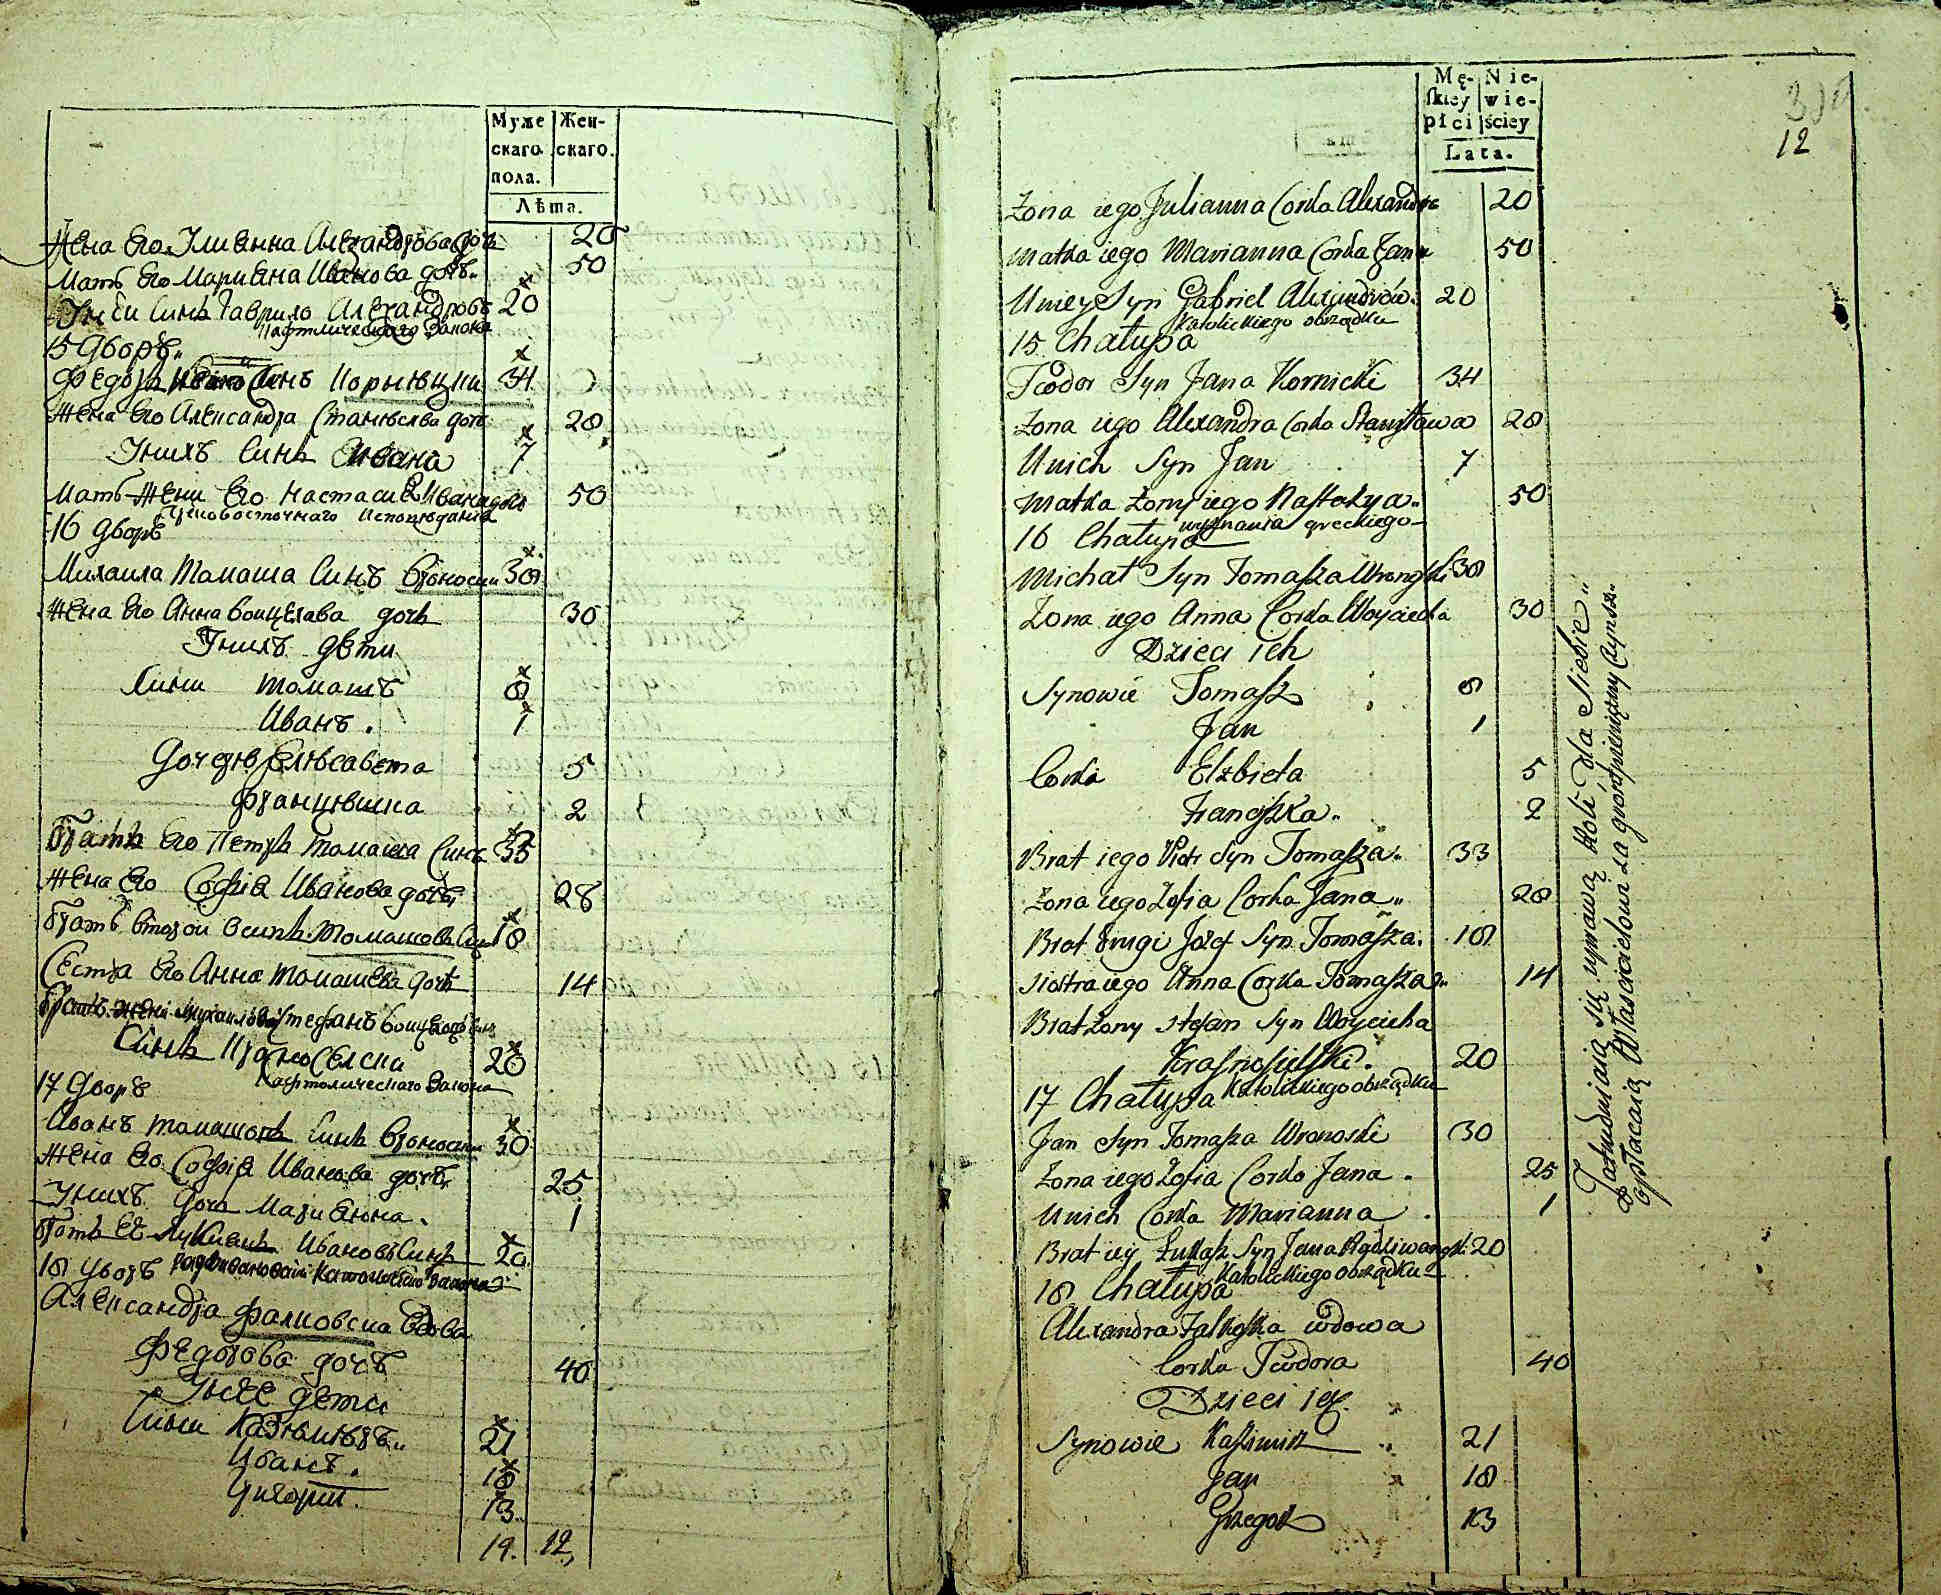 Муже
скаго
пола.
Жен-
скаго.
Лѣта.
Жена Его Улиенна Алезандрова дочь 20
Мать Его Мариена Иванова дочь 50
Унеи Синъ Гаврило Алезандровъ 20
Кафтолическаго Закона
15 дворъ
Федоръ Синъ Корницки 34
Жена Его Александра Станислва дочь 28
Унихъ Синъ Иванъ 7
Мать Жени Его Настасие Ивана дочь 50
Грековосточнаго Исповедание
16 дворъ
Михаила Томаша Синъ Вроноски 30
Жена Его Анна Воицехава дочь 30
Унихъ дети
Сини Томашъ 8
Иванъ. 1
Дочери Елисавета 5
Францишка 2
Братъ Его Петръ Томаша Синъ 33
Жена Его Софиа Иванова дочь 28
Братъ второи Осипъ Томашовъ Синъ 18
Сестра Его Анна Томашева дочь 14
Братъ Жени Михаилова Стефанъ
Синъ Красноселски 20
Кафтолическаго Закона
17 дворъ
Иванъ Томашовъ Синъ Вроноски 30
Жена Его Софиа Иванова дочь 25
Унихъ дочь Мариенна. 1
Братъ Ее Лукиенъ Ивановъ Синъ 20
18 дворъ Католическаго Закона
Александра Фалковска Вдова
Федорова дочъ 40
Унее дети
Сини Казимиръ 21
Иванъ. 18
Григорий. 13
19. 12,
Mę-
skiey
płci
Nie-
wie-
ściey
Lata.
12
Żona iego Julianna Corka Alexandra 20
Matka iego Marianna Corka Jana 50
Uniey Syn Gabriel Alexandrów. 20
Katolickiego obrządku
15 Chałupa
Teodor Syn Jana Kornicki 34
Żona iego Alexandra Corka Stanisława 28
Unich Syn Jan 7
Matka Żony iego Nastazya 50
wyznania greckiego
16 Chałupa
Michał Syn Tomasza Wronoski 30
Żona iego Anna Corka Woyciecha 30
Dzieci ich
Synowie Tomasz 8
Jan 1
Corki Elzbieta 5
Franciszka 2
Brat iego Piotr Syn Tomasza 33
Żona iego Zofia Corka Jana 28
Brat drugi Józef Syn Tomasza. 18
Siostra iego Anna Corka Tomasza 14
Brat Żony Stefan Syn Woyciecha
Krasnosielski. 20
17 Chałupa Katolickiego obrządku
Jan Syn Tomasza Wronoski 30
Żona iego Zofia Corka Jana. 25
Unich Corka Marianna 1
Brat iey Łukasz Syn Jana 20
18 Chałupa Katolickiego obrządku
Alexandra Falkoska wdowa
Corka Teodora 40
Dzieci iey.
Synowie Kazimirz 21
Jan 18
Grzegorz 13
Zatrudniaią się uprawą Roli dla Siebie
opłacaią Właścicielowi za grunt pieniężny Czynsz